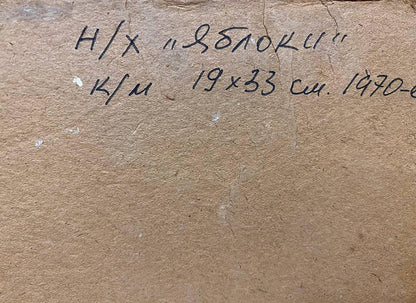 Н/Х „Яблоки"
К/М 19х33 см. 1970-е